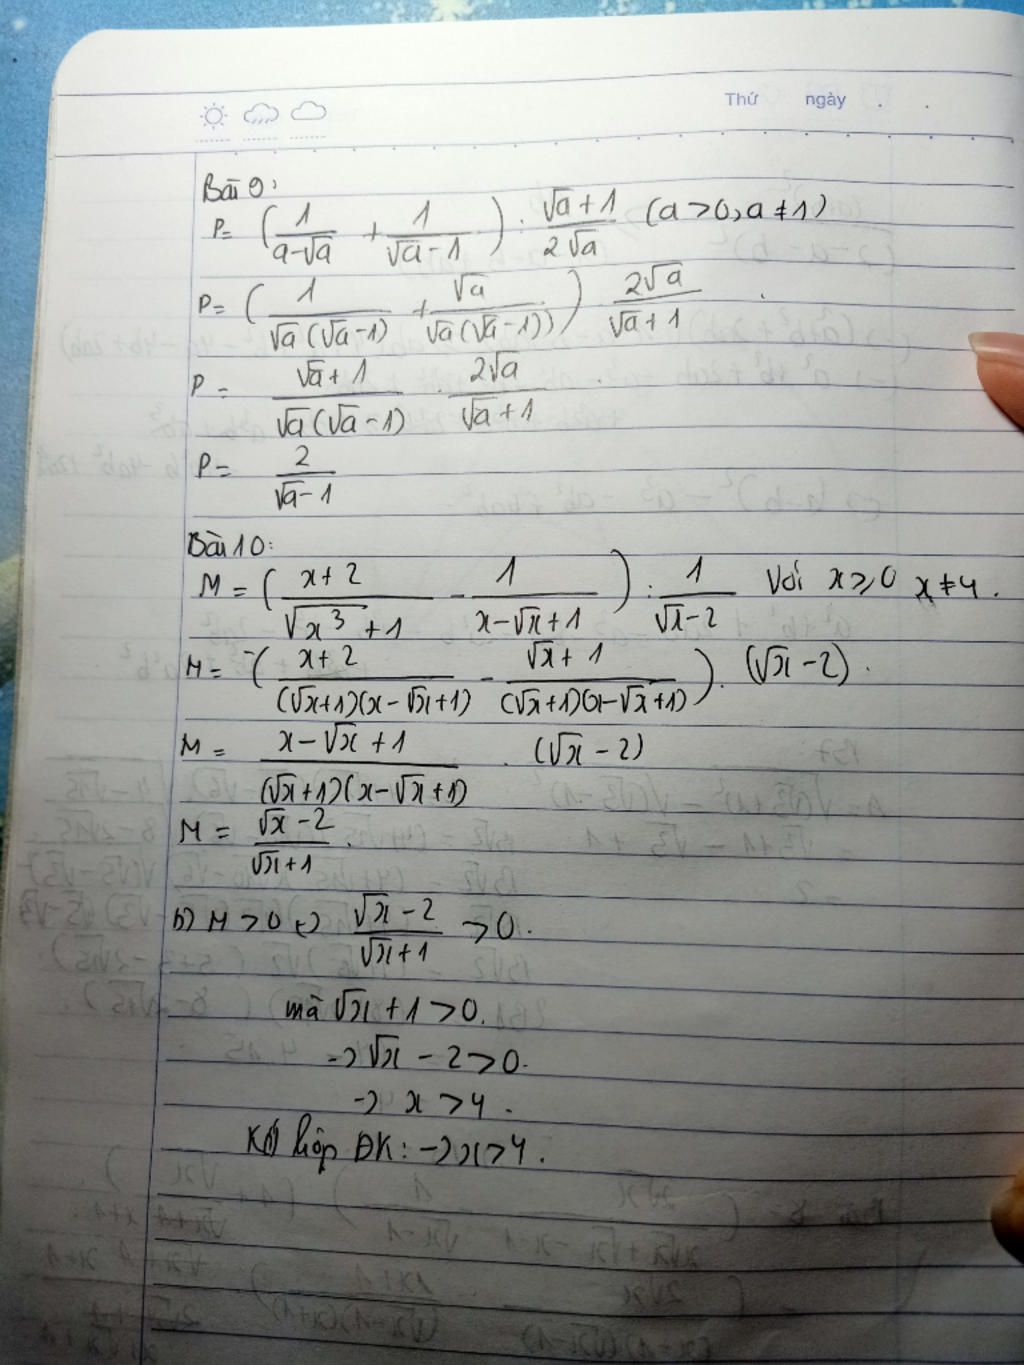 Thứ ngày . .
Bài 9:
P= (1/(a-√a) + 1/(√a-1)) : (√a+1)/(2√a) (a>0, a≠1)
P= (1/(√a(√a-1)) + √a/(√a(√a-1))) . 2√a/(√a+1)
P= (√a+1)/(√a(√a-1)) . 2√a/(√a+1)
P= 2/(√a-1)
Bài 10:
M = ((x+2)/(√x³+1) - 1/(x-√x+1)) : 1/(√x-2) Với x⩾0 x≠4.
M = ((x+2)/((√x+1)(x-√x+1)) - (√x+1)/((√x+1)(x-√x+1))) . (√x-2).
M = (x-√x+1)/((√x+1)(x-√x+1)) . (√x-2)
M = (√x-2)/(√x+1).
b) M>0 <=> (√x-2)/(√x+1) >0.
mà √x+1>0.
=> √x-2>0.
=> x>4.
Kết hợp ĐK: => x>4.